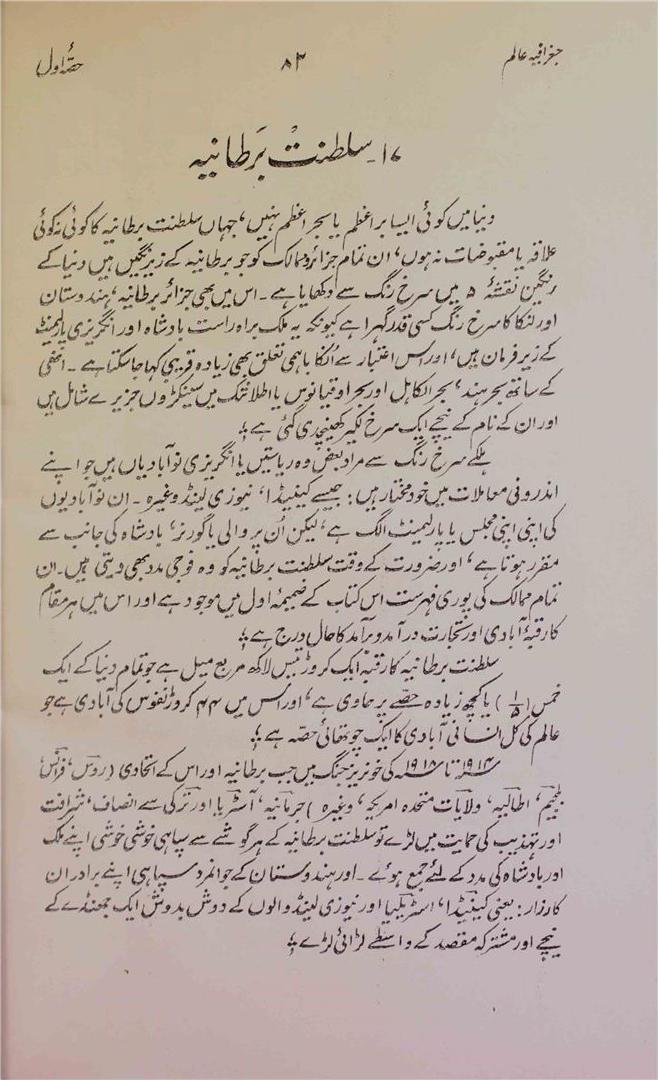 جغرافیہ عالم ۸۳ حصّہ اول
۱۷۔ سلطنتْ بَرطانیہ
دنیا میں کوئی ایسا براعظم یا بحراعظم نہیں، جہاں سلطنت برطانیہ کا کوئی نہ کوئی
علاقہ یا مقبوضات نہ ہوں، ان تمام جزائر و ممالک کو جو برطانیہ کے زیر نگیں ہیں دنیا کے
رنگین نقشۂ ۵ میں سرخ رنگ سے دکھایا ہے۔ اس میں بھی جزائر برطانیہ، ہندوستان
اور لنکا کا سرخ رنگ کسی قدر گہرا ہے کیونکہ یہ ملک براہ راست بادشاہ اور انگریزی پارلیمنٹ
کے زیر فرمان ہیں، اور اس اعتبار سے انکا باہمی تعلق بھی زیادہ قریبی کہا جا سکتا ہے۔ انھی
کے ساتھ بحر ہند، بحرالکاہل اور بحر اوقیانوس یا اطلانٹک میں سینکڑوں جزیرے شامل ہیں
اور ان کے نام کے نیچے ایک سرخ لکیر کھینچدی گئی ہے؛
ہلکے سرخ رنگ سے مراد بعض وہ ریاستیں یا انگریزی نوآبادیاں ہیں جو اپنے
اندرونی معاملات میں خود مختار ہیں: جیسے کینیڈا، نیوزی لینڈ وغیرہ۔ ان نوآبادیوں
کی اپنی اپنی مجلس یا پارلیمنٹ الگ ہے، لیکن اُن پر والی یا گورنر، بادشاہ کی جانب سے
مقرر ہوتا ہے، اور ضرورت کے وقت سلطنت برطانیہ کو وہ فوجی مدد بھی دیتی ہیں۔ ان
تمام ممالک کی پوری فہرست اس کتاب کے ضمیمۂ اول میں موجود ہے اور اس میں ہر مقام
کا رقبۂ آبادی اور تجارت درآمد و برآمد کا حال درج ہے؛
سلطنت برطانیہ کا رقبہ ایک کروڑ تیس لاکھ مربع میل ہے جو تمام دنیا کے ایک
خمس (۱/۵) یا کچھ زیادہ حصّے پر حاوی ہے، اور اس میں ۴۴ کروڑ نفوس کی آبادی ہے جو
عالم کی کل انسانی آبادی کا ایک چوتھائی حصہ ہے؛
۱۹۱۴ تا ۱۹۱۸ کی خونریز جنگ میں جب برطانیہ اور اس کے اتحادی (روس، فرانس
بلجیم، اطالیہ، ولایات متحدہ امریکہ، وغیرہ) جرمانیہ، آسٹریا اور ترکی سے انصاف، شرافت
اور تہذیب کی حمایت میں لڑے تو سلطنت برطانیہ کے ہر گوشے سے سپاہی خوشی خوشی اپنے ملک
اور بادشاہ کی مدد کے لئے جمع ہوئے۔ اور ہندوستان کے جوانمرد سپاہی اپنے برادران
کارزار: یعنی کینیڈا، اسٹریلیا اور نیوزی لینڈ والوں کے دوش بدوش ایک جھنڈے کے
نیچے اور مشترکہ مقصد کے واسطے لڑائی لڑے؛